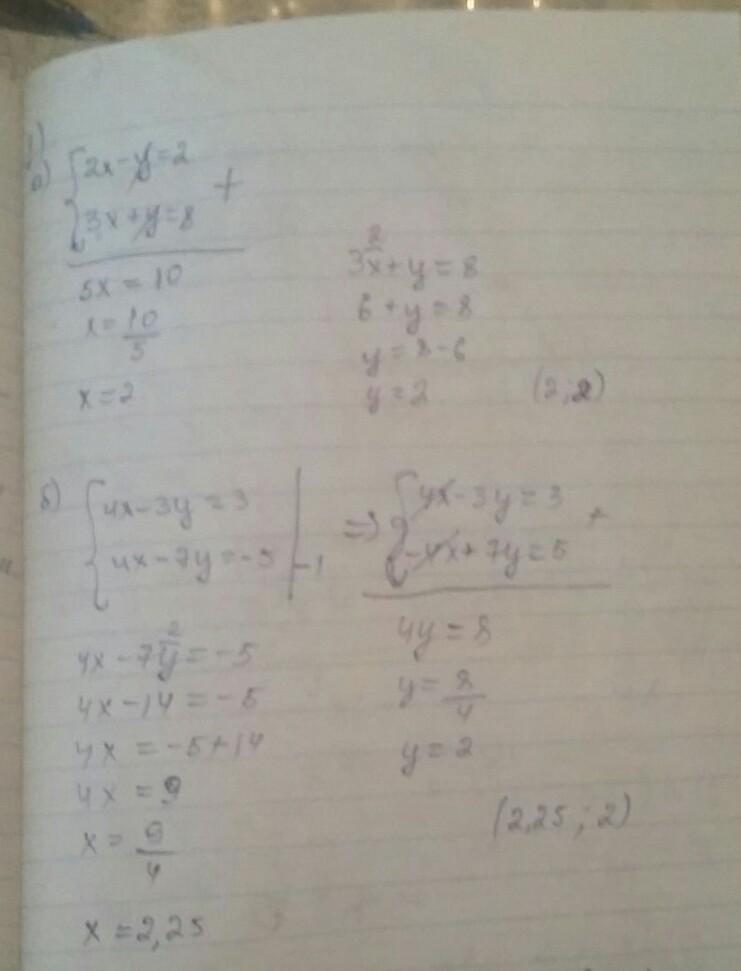 1)
а) {2x-y=2
{3x+y=8 +
5x=10
x=10/5
x=2
2
3x+y=8
6+y=8
y=8-6
y=2
(2;2)
б) {4x-3y=3
{4x-7y=-5 | -1
=> {4x-3y=3
{-4x+7y=5 +
4y=8
y=8/4
y=2
2
4x-7y=-5
4x-14=-5
4x=-5+14
4x=9
x=9/4
x=2,25
(2,25;2)